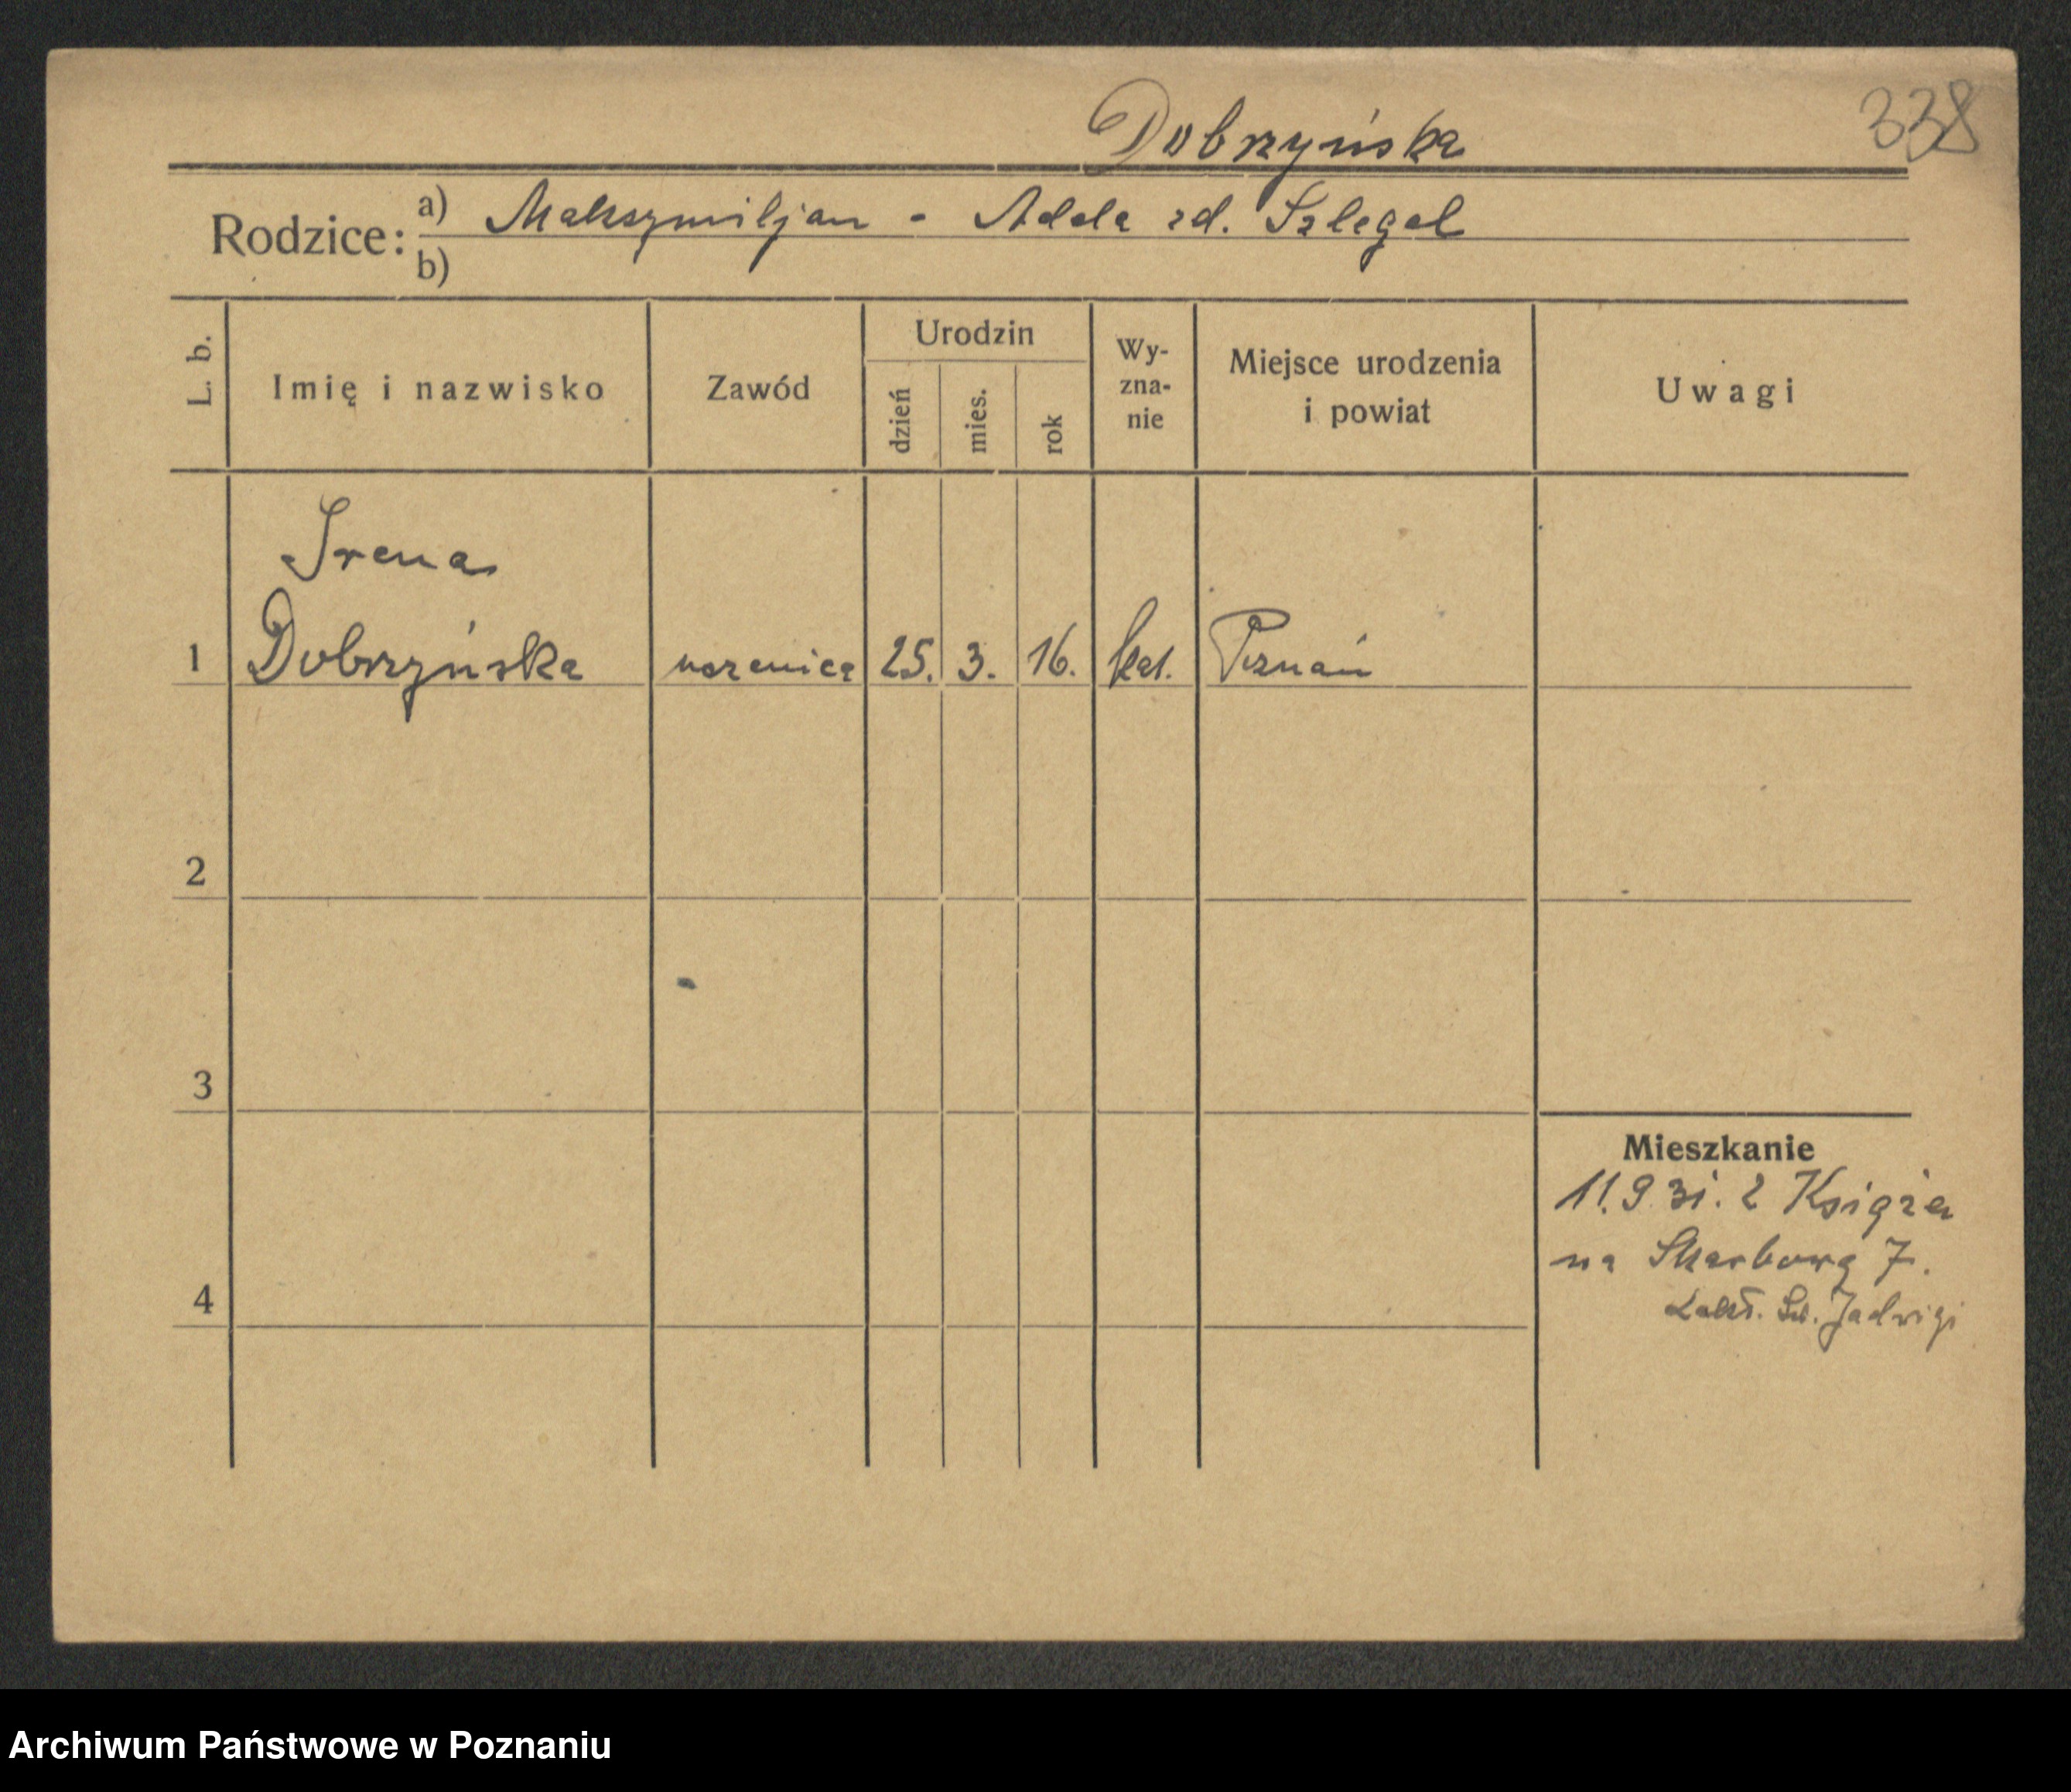 Dobrzyńska
338
Rodzice: a) Maksymiljan - Adela zd. Szlegel
b)
L. b.
Imię i nazwisko
Zawód
Urodzin
dzień
mies.
rok
Wy-
zna-
nie
Miejsce urodzenia
i powiat
Uwagi
Irena
1 Dobrzyńska uczenica 25. 3. 16. kat. Poznań
2
3
Mieszkanie
11.9.31. z Książa
na Skarbową 7.
4
Zakł. Św. Jadwigi
Archiwum Państwowe w Poznaniu